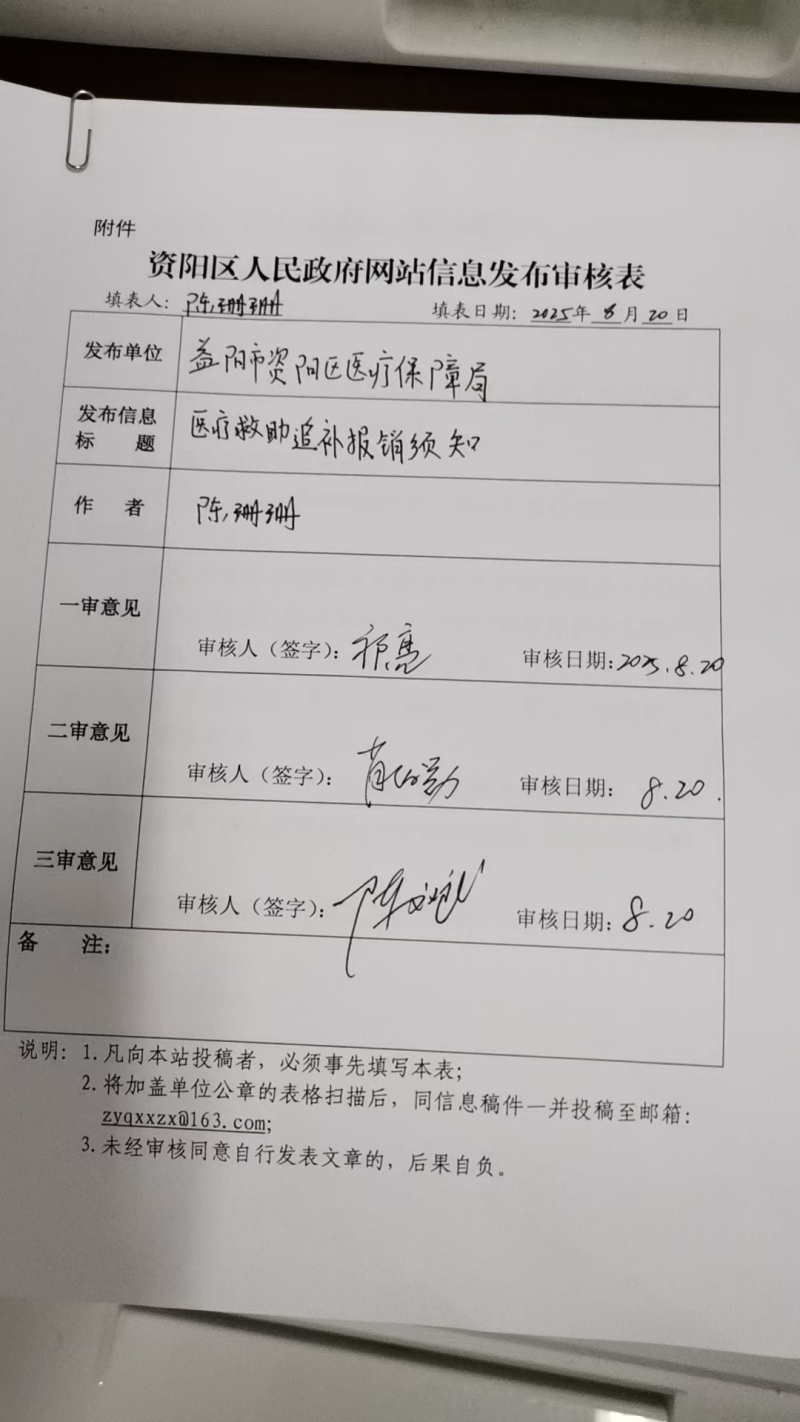 附件
资阳区人民政府网站信息发布审核表
填表人：陈珊珊 填表日期：2025年8月20日
发布单位 益阳市资阳区医疗保障局
发布信息标题 医疗救助追补报销须知
作者 陈珊珊
一审意见
审核人（签字）： 审核日期：2025.8.20
二审意见
审核人（签字）： 审核日期：8.20.
三审意见
审核人（签字）： 审核日期：8.20
备注：
说明：1.凡向本站投稿者，必须事先填写本表；
2.将加盖单位公章的表格扫描后，同信息稿件一并投稿至邮箱：
zyqxxzx@163.com;
3.未经审核同意自行发表文章的，后果自负。